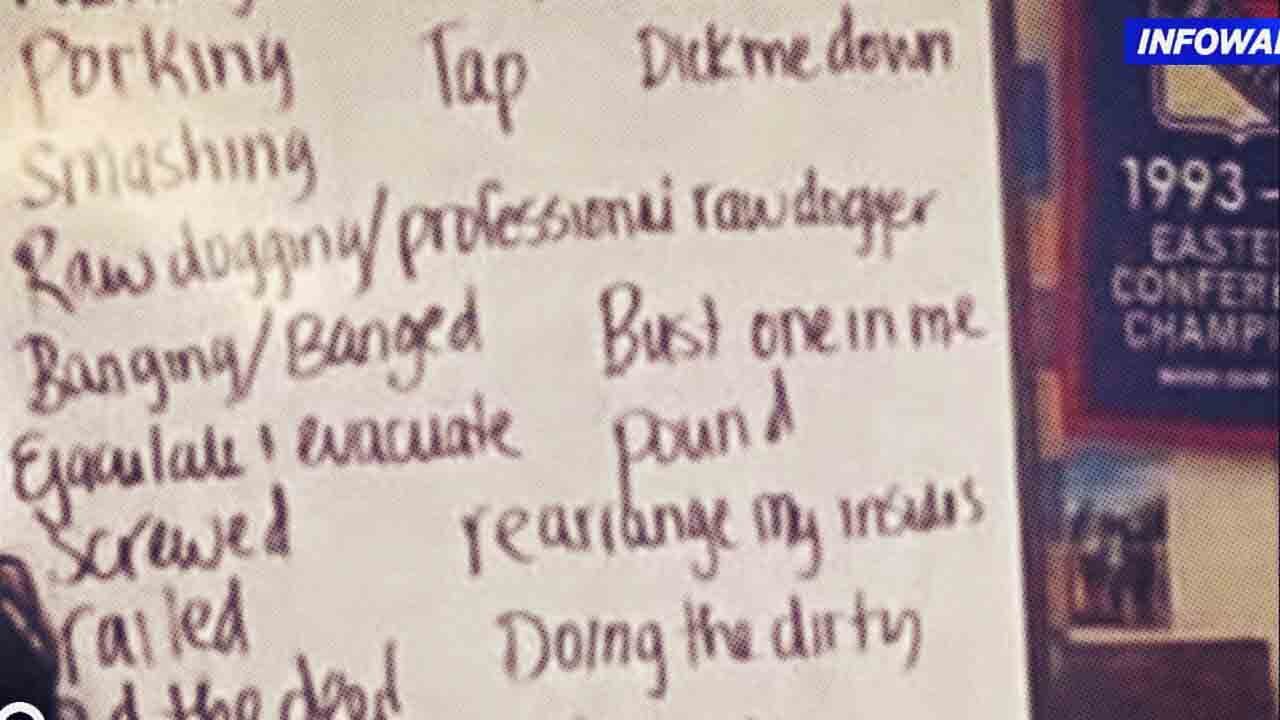 Porking Tap Dick me down
Smashing
Raw dogging/professional raw dogger
Banging/Banged Bust one in me
Ejaculate evacuate pound
Screwed rearrange my insides
railed Doing the dirty
the deed
INFOWA
1993 -
EASTE
CONFERE
CHAMPI